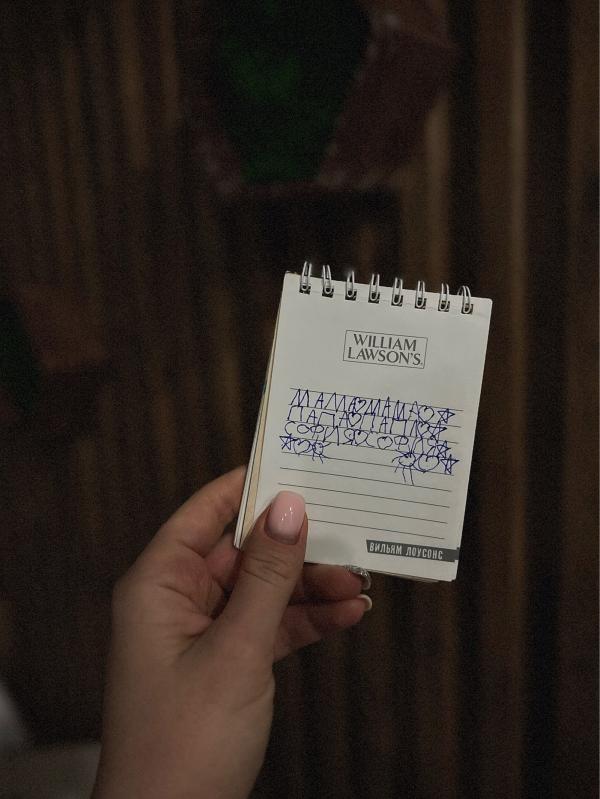 WILLIAM
LAWSON'S
МАМА♡МАМА♡☆
ПАПА♡ПАПА♡☆
СОФИЯ♡СОФИЯ☆
ВИЛЬЯМ ЛОУСОНС